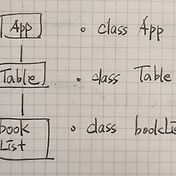 App • class App
Table • class Table
book • class bookLis
List